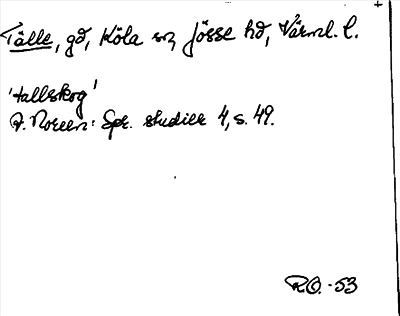 Tälle, gd, Köla sn, Jösse hd, Värml. l.
'tallskog'
A. Noreen: Spr. studier 4, s. 49.
R.O. -53